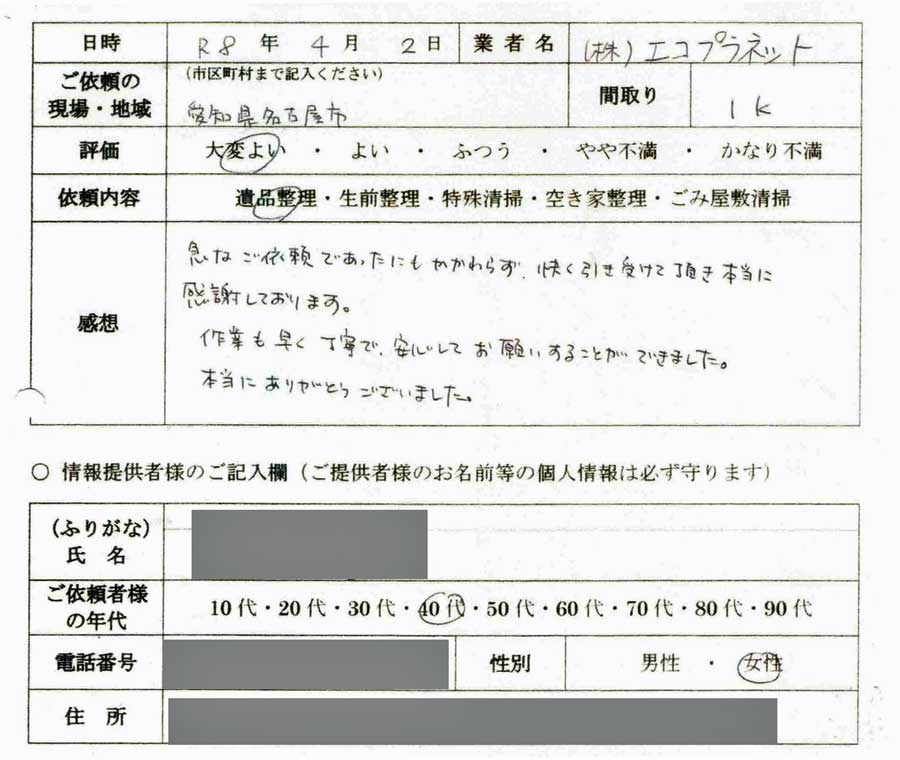 日時 R8年 4月 2日 業者名 (株)エコプラネット
ご依頼の現場・地域 (市区町村まで記入ください) 愛知県名古屋市 間取り 1K
評価 大変よい ・ よい ・ ふつう ・ やや不満 ・ かなり不満
依頼内容 遺品整理・生前整理・特殊清掃・空き家整理・ごみ屋敷清掃
感想
急なご依頼であったにもかかわらず、快く引き受けて頂き本当に
感謝しております。
作業も早く丁寧で、安心してお願いすることができました。
本当にありがとうございました。
○ 情報提供者様のご記入欄（ご提供者様のお名前等の個人情報は必ず守ります）
(ふりがな)
氏 名
ご依頼者様の年代 10代・20代・30代・40代・50代・60代・70代・80代・90代
電話番号 性別 男性 ・ 女性
住 所